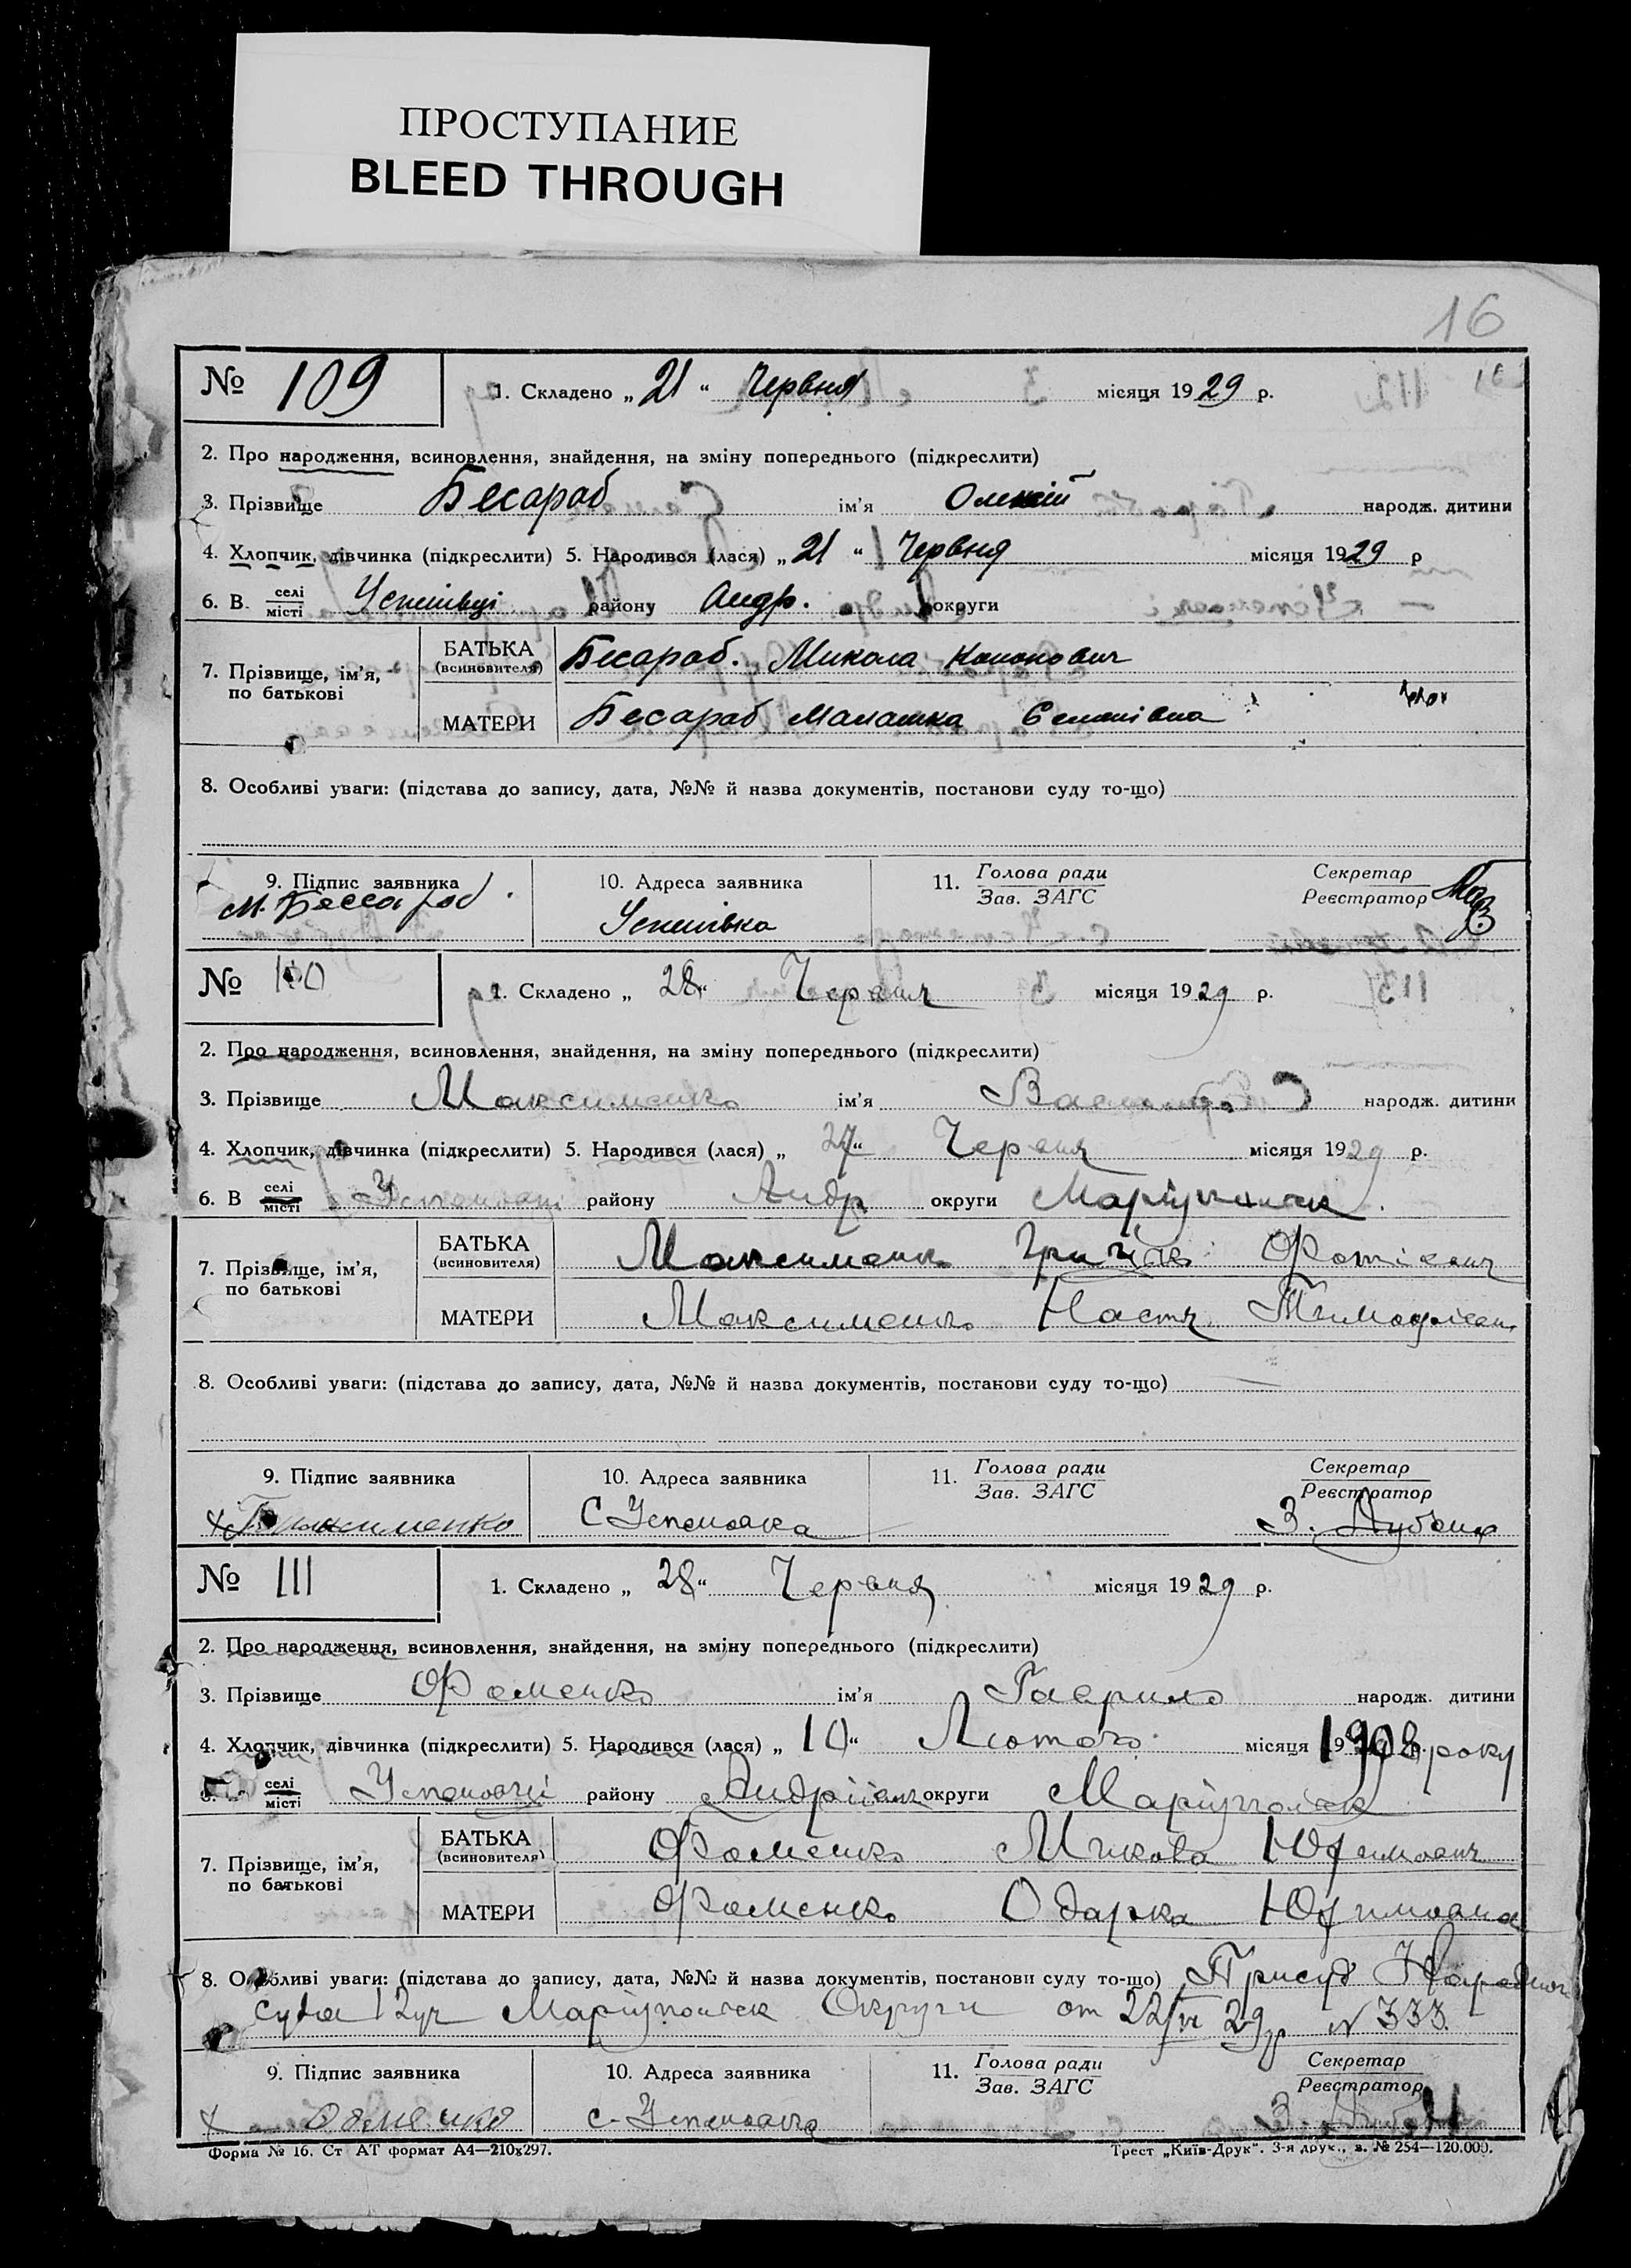 ПРОСТУПАНИЕ
BLEED THROUGH
16
№ 109 1. Складено „ 21 “ Червня місяця 1929 р.
2. Про народження, всиновлення, знайдення, на зміну попереднього (підкреслити)
3. Прізвище Бесараб ім'я Олексій народж. дитини
4. Хлопчик, дівчинка (підкреслити) 5. Народився (лася) „ 21 “ Червня місяця 1929 р
6. В селі місті Успенівці району Андр. округи
7. Прізвище, ім'я, по батькові
БАТЬКА (всиновителя) Бесараб. Микола Кононович
МАТЕРИ Бесараб Малашка Семенівна
8. Особливі уваги: (підстава до запису, дата, №№ й назва документів, постанови суду то-що)
9. Підпис заявника 10. Адреса заявника 11. Голова ради Зав. ЗАГС Секретар Реєстратор
М. Бессараб Успенівка
№ 110 1. Складено „ 28 “ Червня місяця 1929 р.
2. Про народження, всиновлення, знайдення, на зміну попереднього (підкреслити)
3. Прізвище Максименко ім'я народж. дитини
4. Хлопчик, дівчинка (підкреслити) 5. Народився (лася) „ 27 “ Червня місяця 1929 р.
6. В селі місті Успеновці району Андр округи Маріупольск
7. Прізвище, ім'я, по батькові
БАТЬКА (всиновителя) Максименко Фотієвич
МАТЕРИ Максименко Настя Тимофієвн
8. Особливі уваги: (підстава до запису, дата, №№ й назва документів, постанови суду то-що)
9. Підпис заявника 10. Адреса заявника 11. Голова ради Зав. ЗАГС Секретар Реєстратор
Максименко С Успеновка З.
№ 111 1. Складено „ 28 “ Червня місяця 1929 р.
2. Про народження, всиновлення, знайдення, на зміну попереднього (підкреслити)
3. Прізвище Фоменко ім'я Гаврило народж. дитини
4. Хлопчик, дівчинка (підкреслити) 5. Народився (лася) „ 10 “ Лютого місяця 1908 року
селі місті Успеновці району Андріівск округи Маріупольск
7. Прізвище, ім'я, по батькові
БАТЬКА (всиновителя) Фоменко Микола Юфимович
МАТЕРИ Фоменко Одарка Юфимовна
8. Особливі уваги: (підстава до запису, дата, №№ й назва документів, постанови суду то-що) Присуд Народного
суда 12 уч Маріупольск Округи от 22/VI 29р N 333
9. Підпис заявника 10. Адреса заявника 11. Голова ради Зав. ЗАГС Секретар Реєстратор
с. Успеновка З.
Форма № 16. Ст АТ формат А4—210х297. Трест „Київ-Друк“. 3-я друк., з. № 254—120.000.